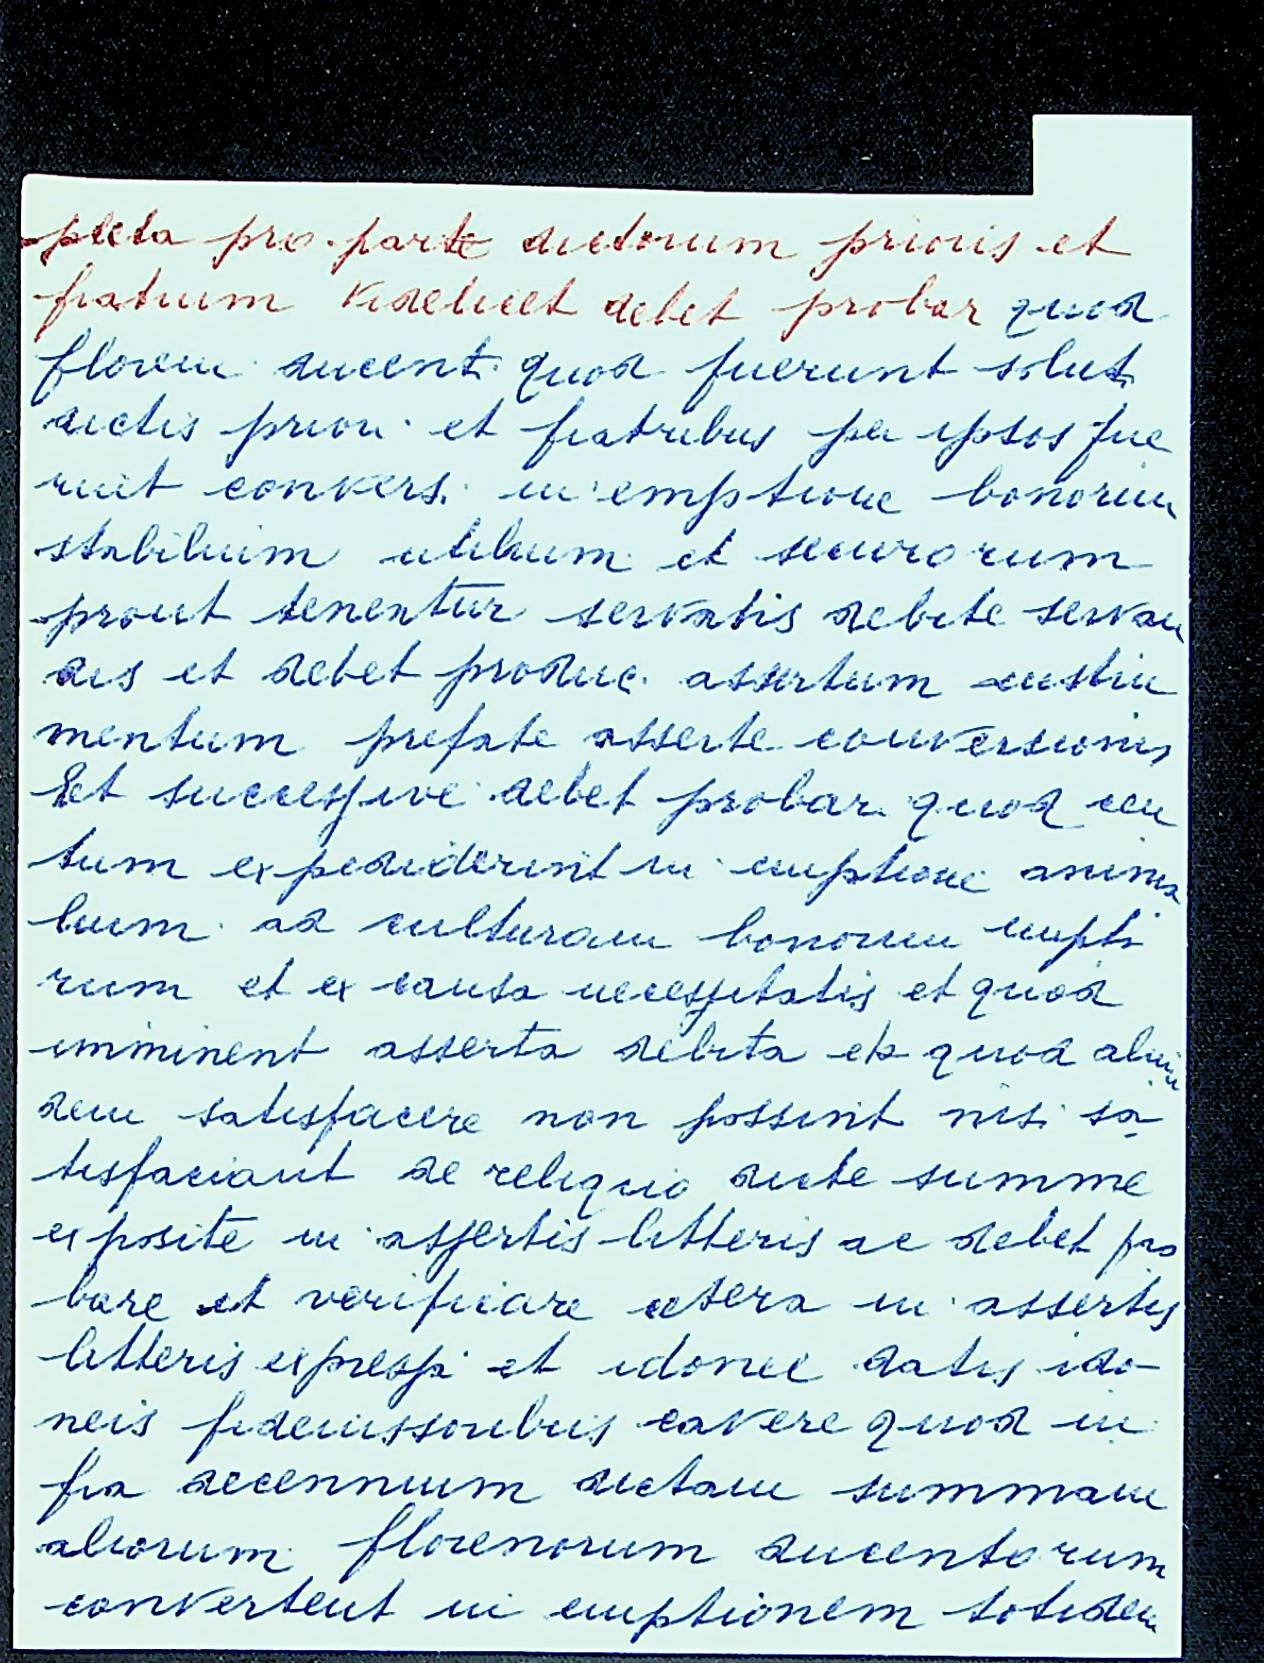 pleta pro parte dictorum prioris et
fratrum videlicet debet probar quod
floreni ducent. quod fuerunt solut.
dictis priori et fratribus per ipsos fue
runt convers. in emptione bonorum
stabilium utilium et securorum
prout tenentur servatis debite servan
dis et debet produc. assertum instru
mentum prefate asserte conversionis
Et successive debet probar. quod cen
tum expendiderint in emptione anima
lium ad culturam bonorum empto
rum et ex causa necessitatis et quod
imminent asserta debita et quod
dem satisfacere non possint nisi sa
tisfaciant de reliquo dicte summe
exposite in assertis litteris ac debet pro
bare et verificare cetera in assertis
litteris expressa et idonee datis ido-
neis fideiussoribus cavere quod in
fra decennium dictam summam
aliorum florenorum ducentorum
convertent in emptionem totidem